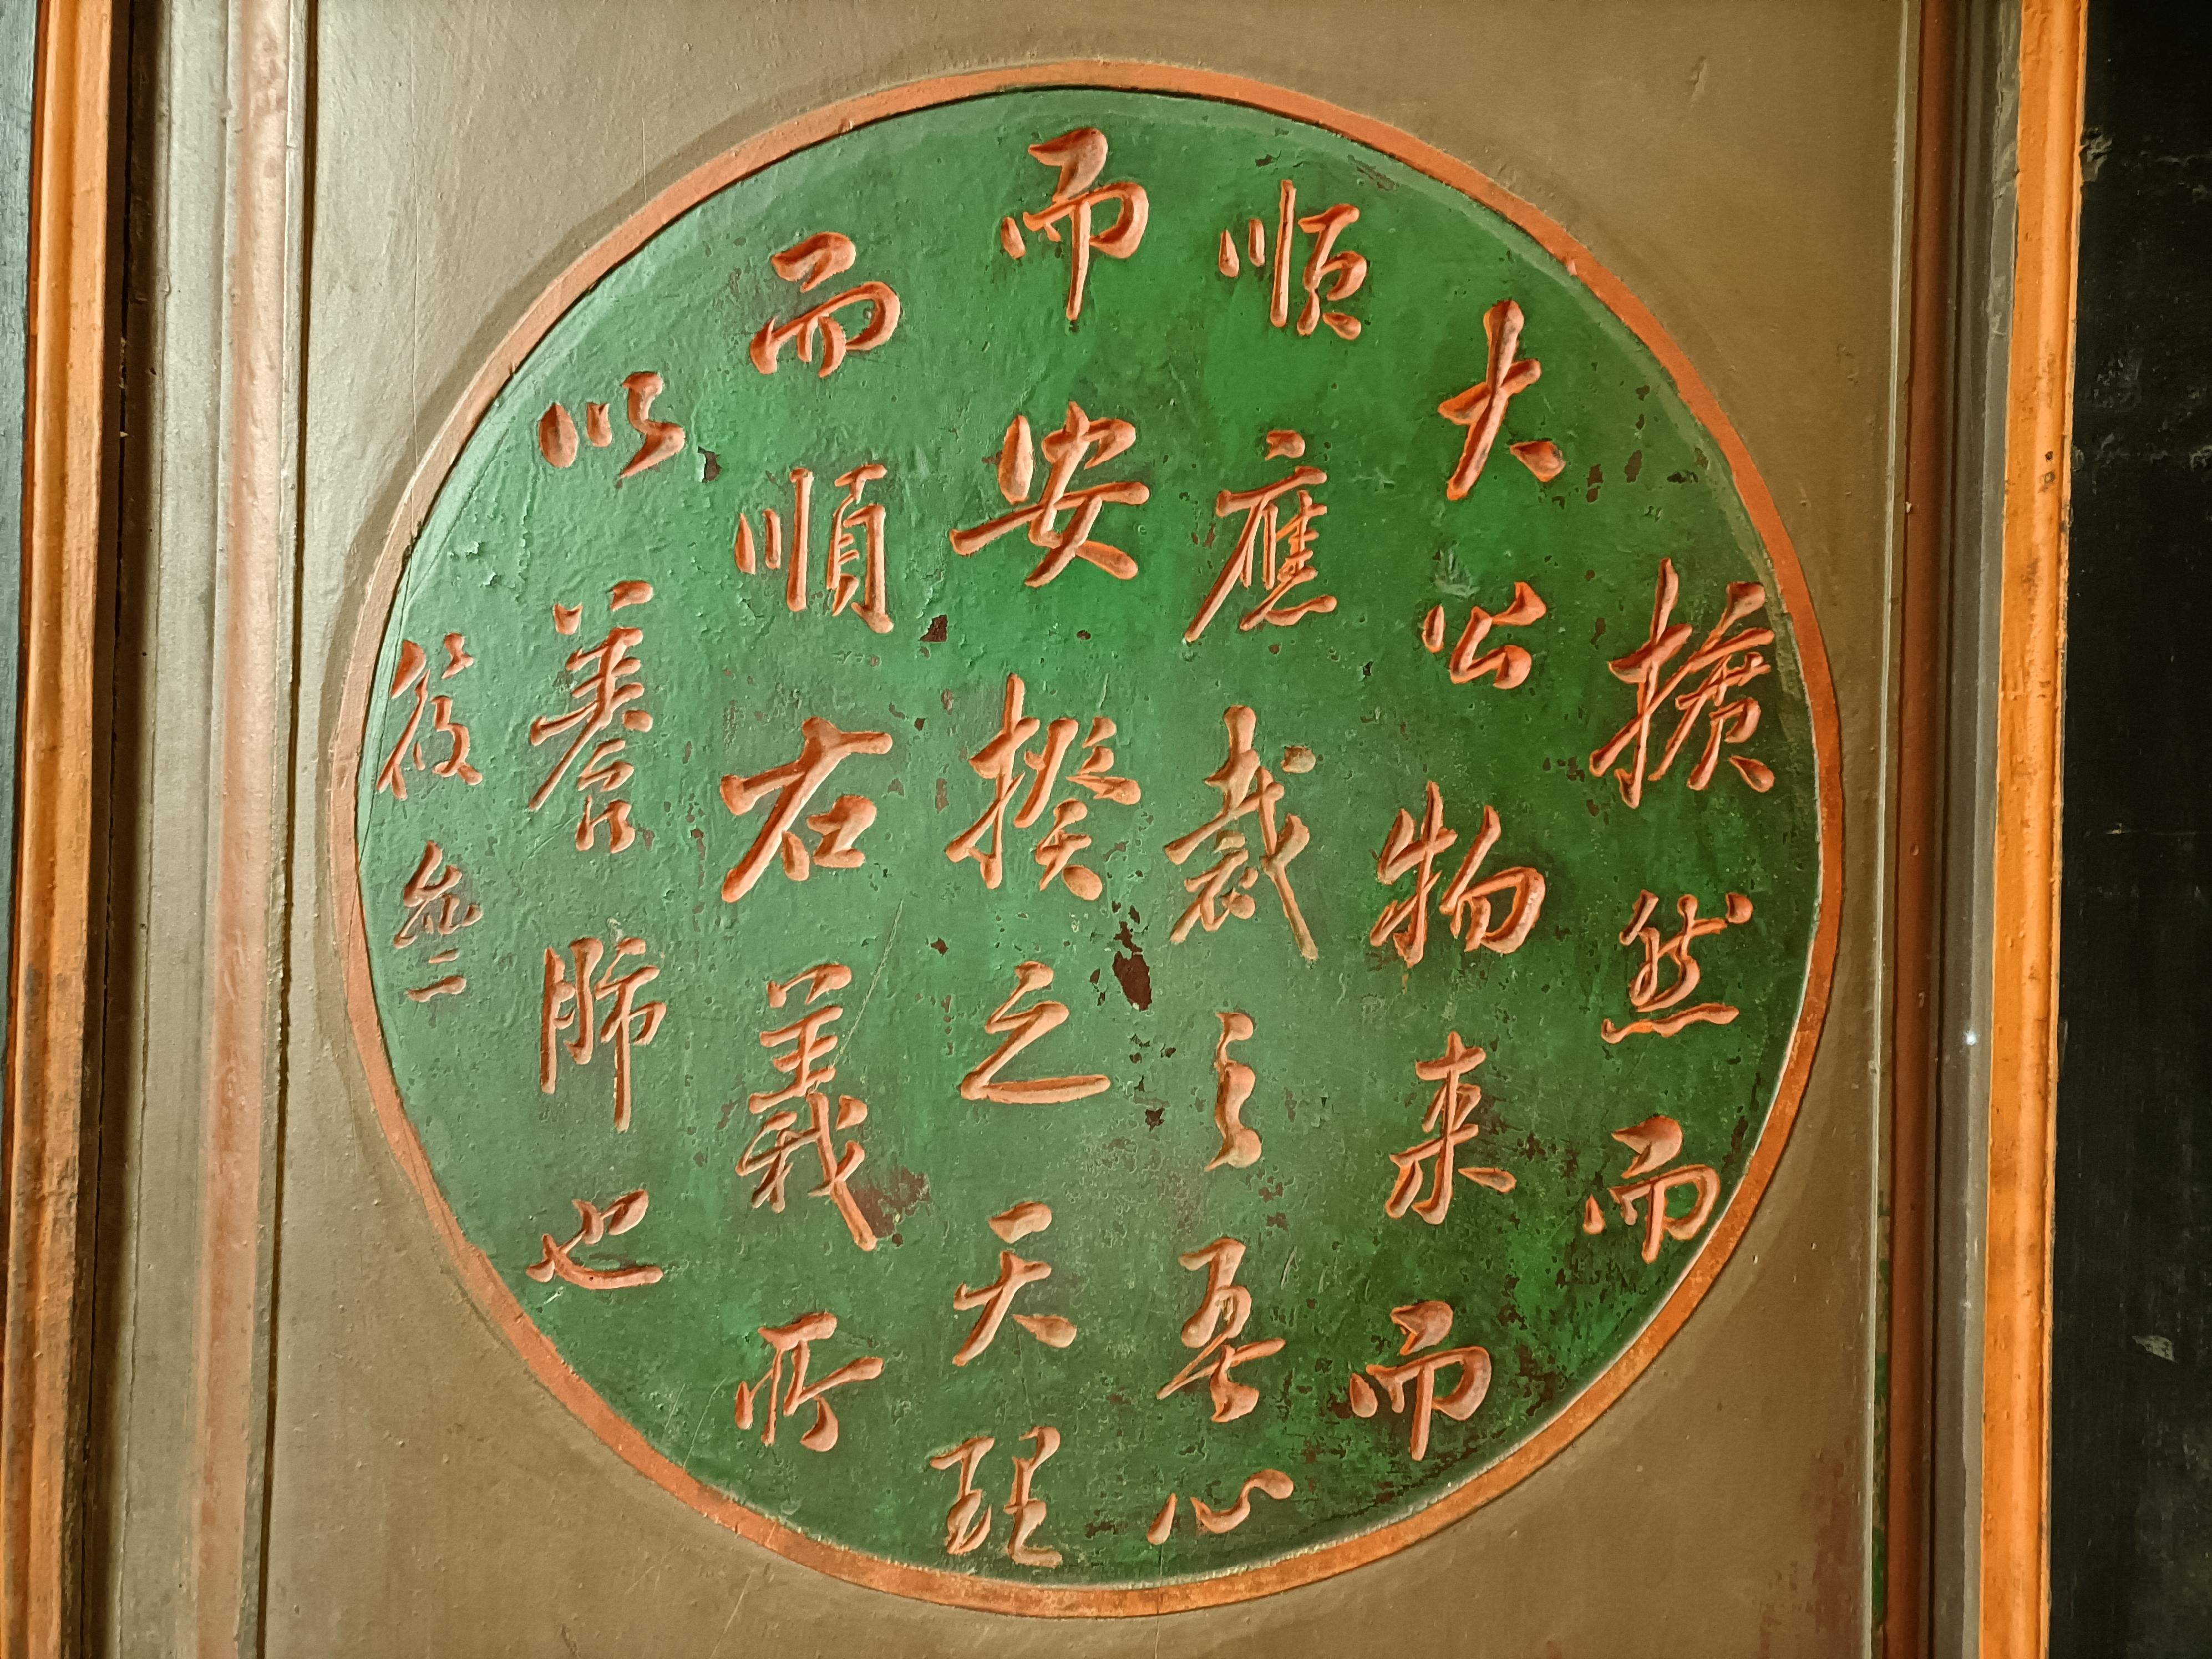 擴然而
大公物来而
順應裁之吾心
而安揆之天理
而順右義所
以養肺也
筱